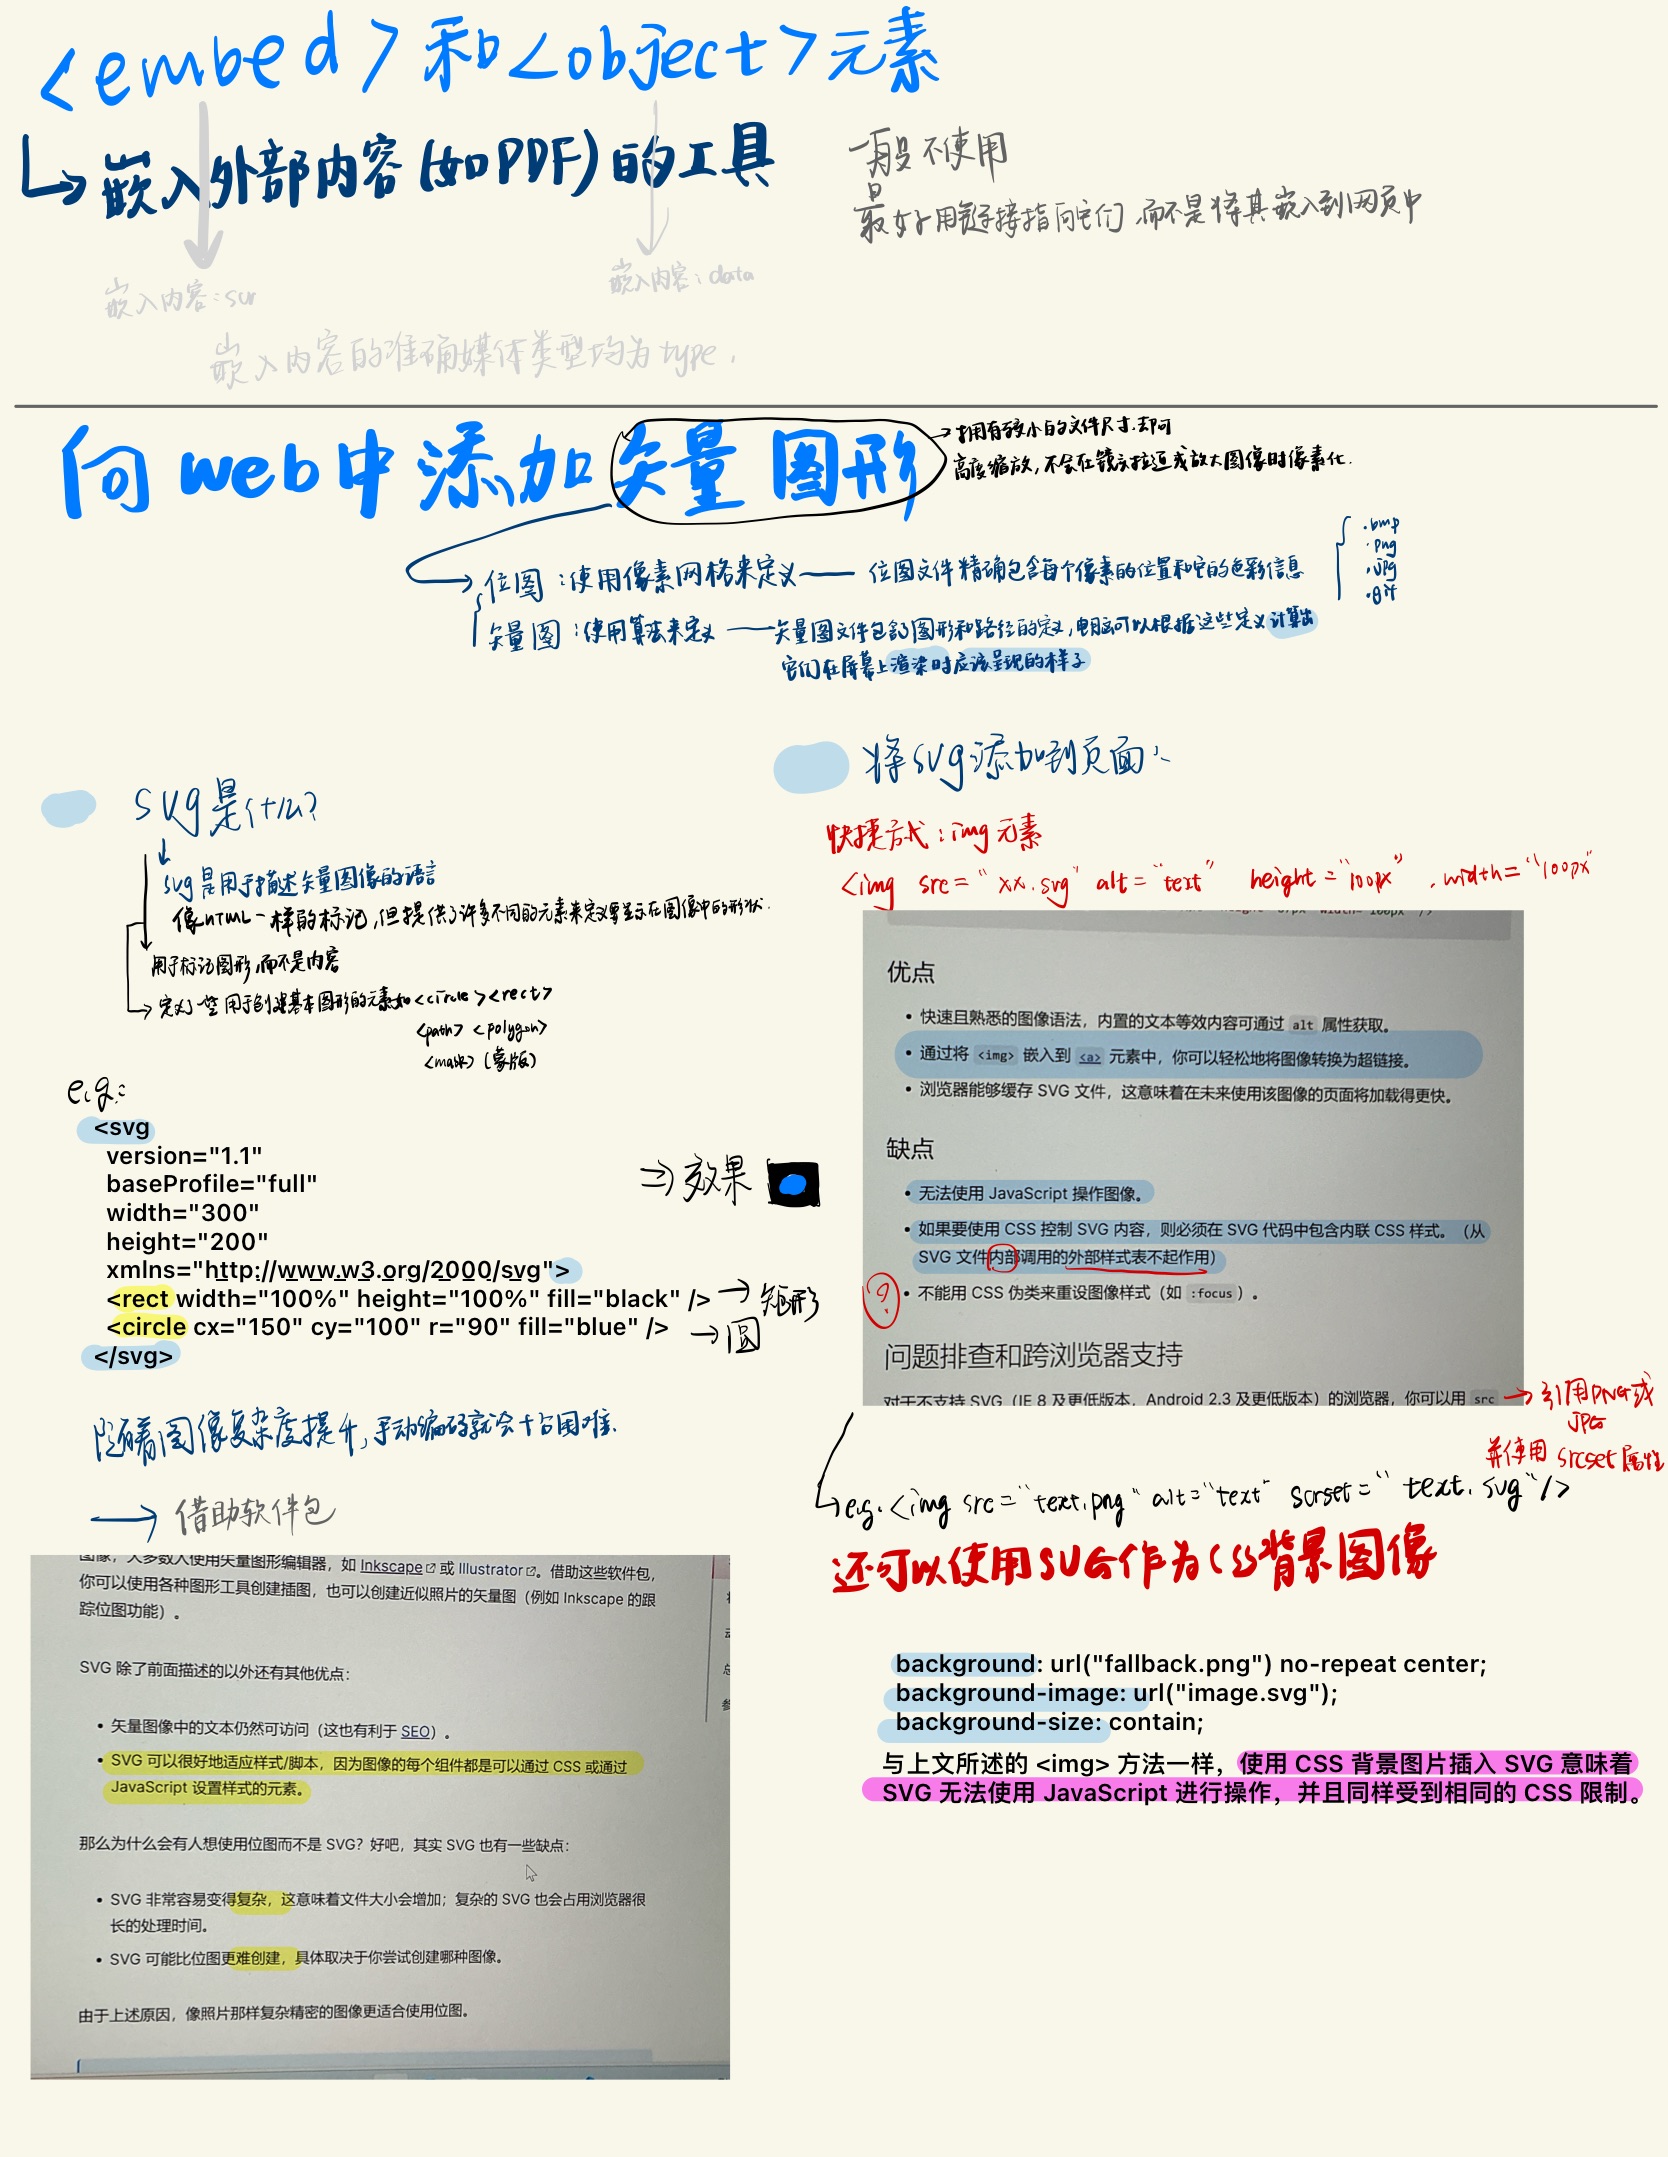 <embed>和<object>元素
嵌入外部内容(如PDF)的工具
一般不使用
最好用链接指向它们,而不是将其嵌入到网页中
嵌入内容:scr
嵌入内容:data
嵌入内容的准确媒体类型均为type.
向web中添加矢量图形
拥有较小的文件尺寸,却可
高度缩放,不会在镜头拉近或放大图像时像素化.
位图:使用像素网格来定义——位图文件精确包含每个像素的位置和它的色彩信息
.bmp
.png
.jpg
.gif
矢量图:使用算法来定义——矢量图文件包含了图形和路径的定义,电脑可以根据这些定义计算出
它们在屏幕上渲染时应该呈现的样子
svg是什么?
svg是用于描述矢量图像的语言
像HTML一样的标记,但提供了许多不同的元素来定义要显示在图像中的形状.
用于标记图形,而不是内容
定义了一些用于创建基本图形的元素如<circle><rect>
<path><polygon>
<mask>(蒙版)
e.g.:
<svg
version="1.1"
baseProfile="full"
width="300"
height="200"
xmlns="http://www.w3.org/2000/svg">
<rect width="100%" height="100%" fill="black" /> → 矩形
<circle cx="150" cy="100" r="90" fill="blue" /> → 圆
</svg>
⇒效果
随着图像复杂度提升,手动编码就会十分困难.
→ 借助软件包
图像，大多数人使用矢量图形编辑器，如 Inkscape 或 Illustrator。借助这些软件包，
你可以使用各种图形工具创建插图，也可以创建近似照片的矢量图（例如 Inkscape 的跟
踪位图功能）。
SVG 除了前面描述的以外还有其他优点：
• 矢量图像中的文本仍然可访问（这也有利于 SEO）。
• SVG 可以很好地适应样式/脚本，因为图像的每个组件都是可以通过 CSS 或通过
JavaScript 设置样式的元素。
那么为什么会有人想使用位图而不是 SVG？好吧，其实 SVG 也有一些缺点：
• SVG 非常容易变得复杂，这意味着文件大小会增加；复杂的 SVG 也会占用浏览器很
长的处理时间。
• SVG 可能比位图更难创建，具体取决于你尝试创建哪种图像。
由于上述原因，像照片那样复杂精密的图像更适合使用位图。
将svg添加到页面:
快捷方式:img元素
<img src="xx.svg" alt="text" height="100px" .width="100px"
优点
• 快速且熟悉的图像语法，内置的文本等效内容可通过 alt 属性获取。
• 通过将 <img> 嵌入到 <a> 元素中，你可以轻松地将图像转换为超链接。
• 浏览器能够缓存 SVG 文件，这意味着在未来使用该图像的页面将加载得更快。
缺点
• 无法使用 JavaScript 操作图像。
• 如果要使用 CSS 控制 SVG 内容，则必须在 SVG 代码中包含内联 CSS 样式。（从
SVG 文件内部调用的外部样式表不起作用）
? • 不能用 CSS 伪类来重设图像样式（如 :focus）。
问题排查和跨浏览器支持
对于不支持 SVG（IE 8 及更低版本，Android 2.3 及更低版本）的浏览器，你可以用 src
→引用PNG或
JPG
并使用srcset属性
e.g.<img src="text.png" alt="text" scrset="text.svg"/>
还可以使用SVG作为CSS背景图像
background: url("fallback.png") no-repeat center;
background-image: url("image.svg");
background-size: contain;
与上文所述的 <img> 方法一样，使用 CSS 背景图片插入 SVG 意味着
SVG 无法使用 JavaScript 进行操作，并且同样受到相同的 CSS 限制。